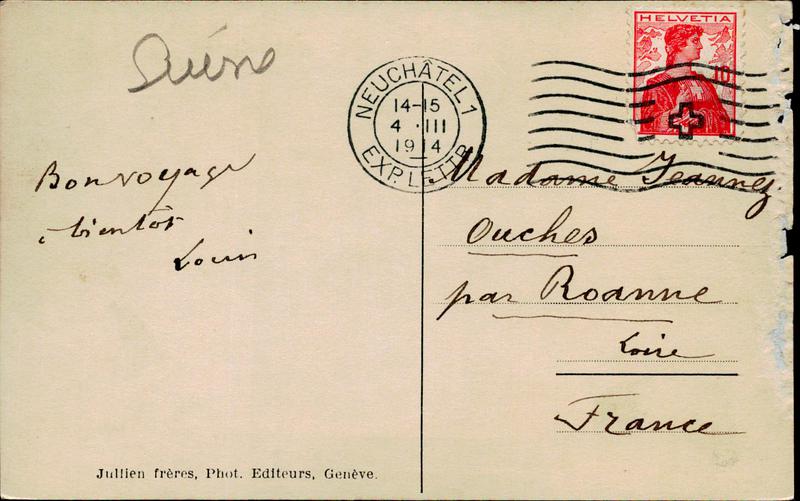 HELVETIA
10
NEUCHÂTEL 1
14-15
4 . III
1914
EXP. LETTR.
Bon voyage
à bientôt
Louis
Madame Jeannez
Ouches
par Roanne
Loire
France
Jullien frères, Phot. Editeurs, Genève.